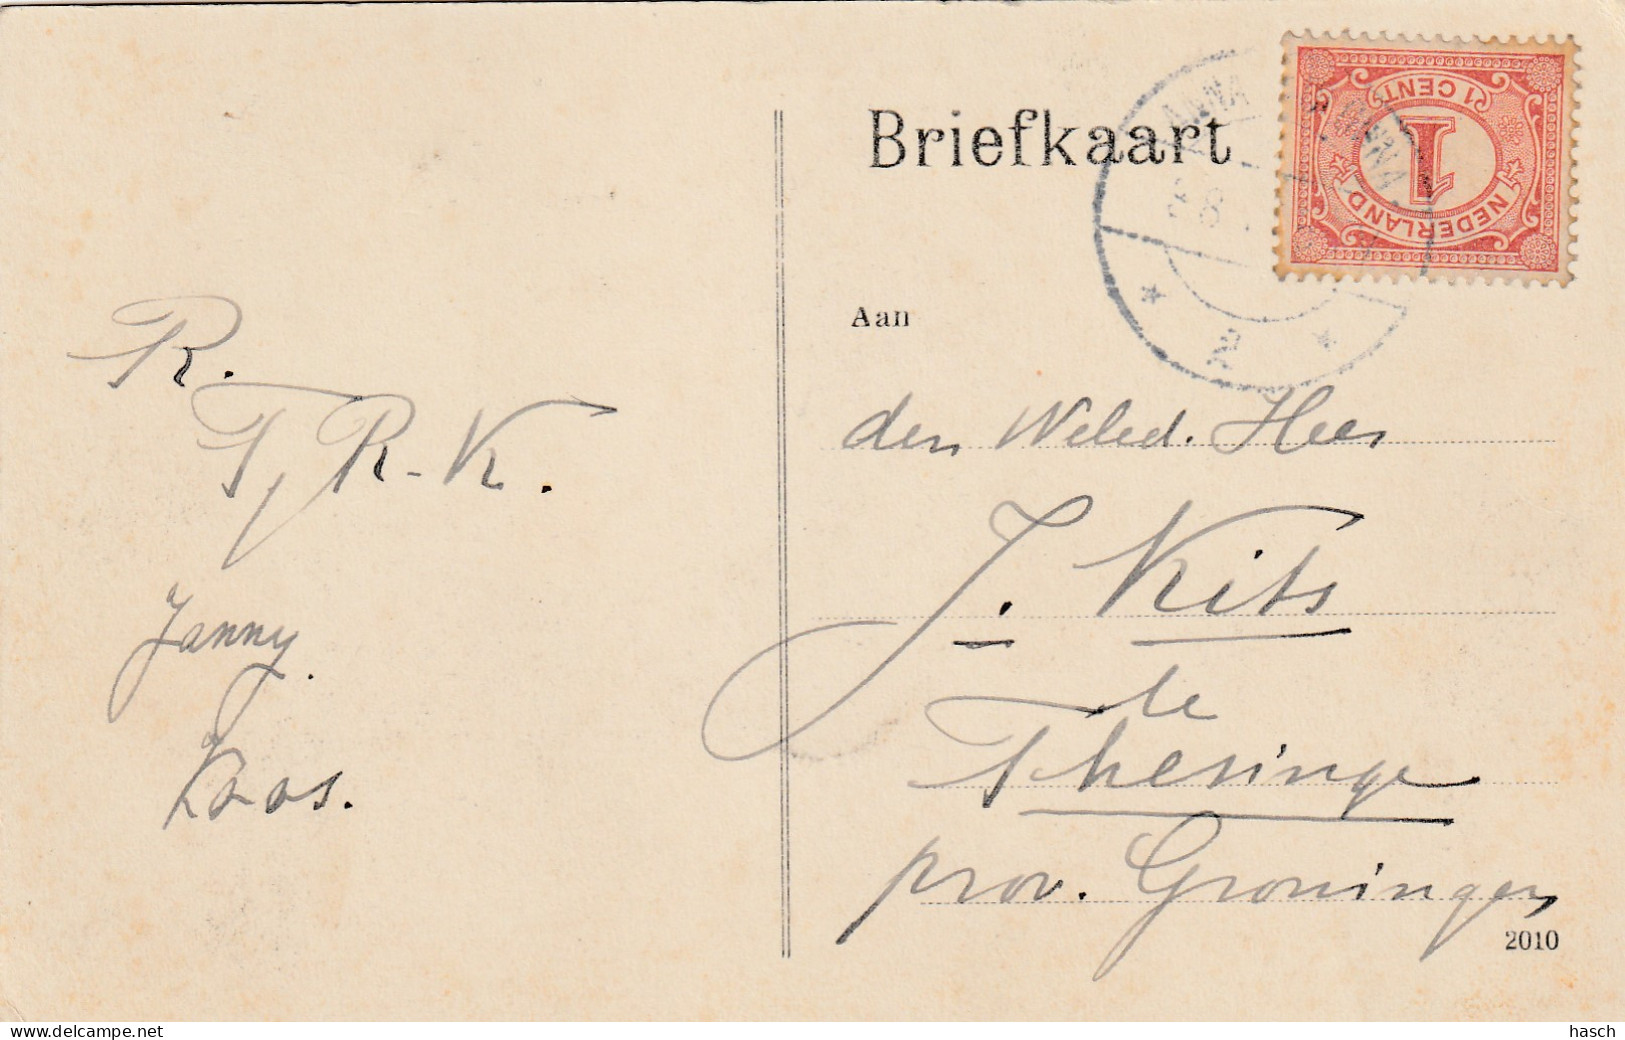 Briefkaart
1 CENT
1
NEDERLAND
ANNA
Aan
2
R.
T, R-K.
Janny.
Koos.
den Weled. Heer
J. Kits
te
Thesinge
prov. Groningen
2010
www.delcampe.net
hasch